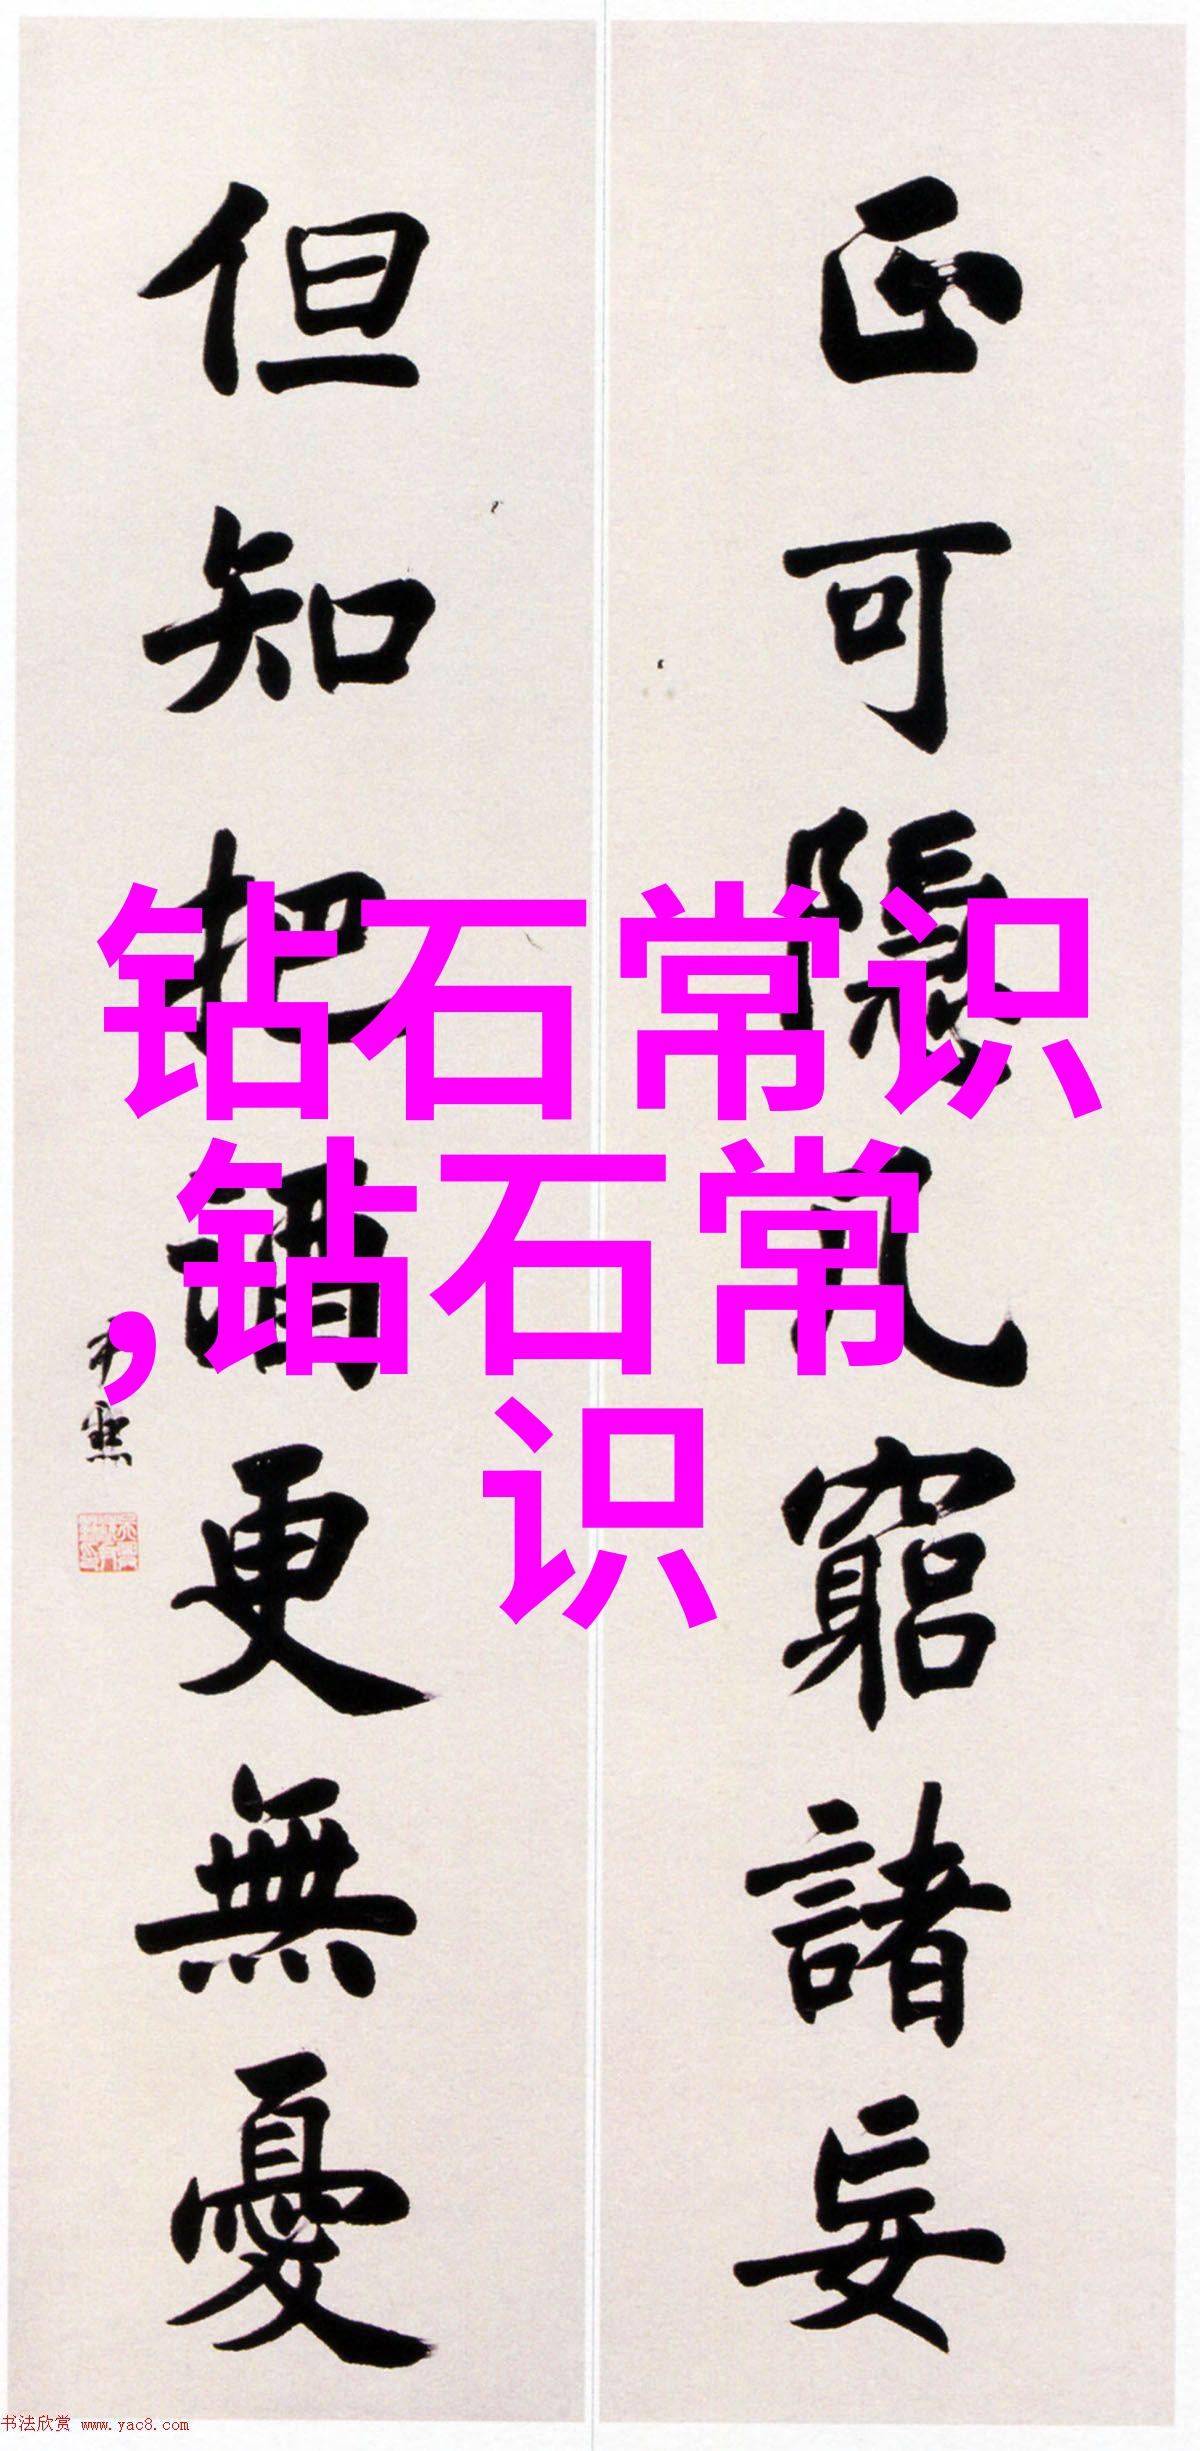 正可隱几窮諸妄
但知把酒更無憂
钻石常识
,钻石常
识
书法欣赏 www.yac8.com